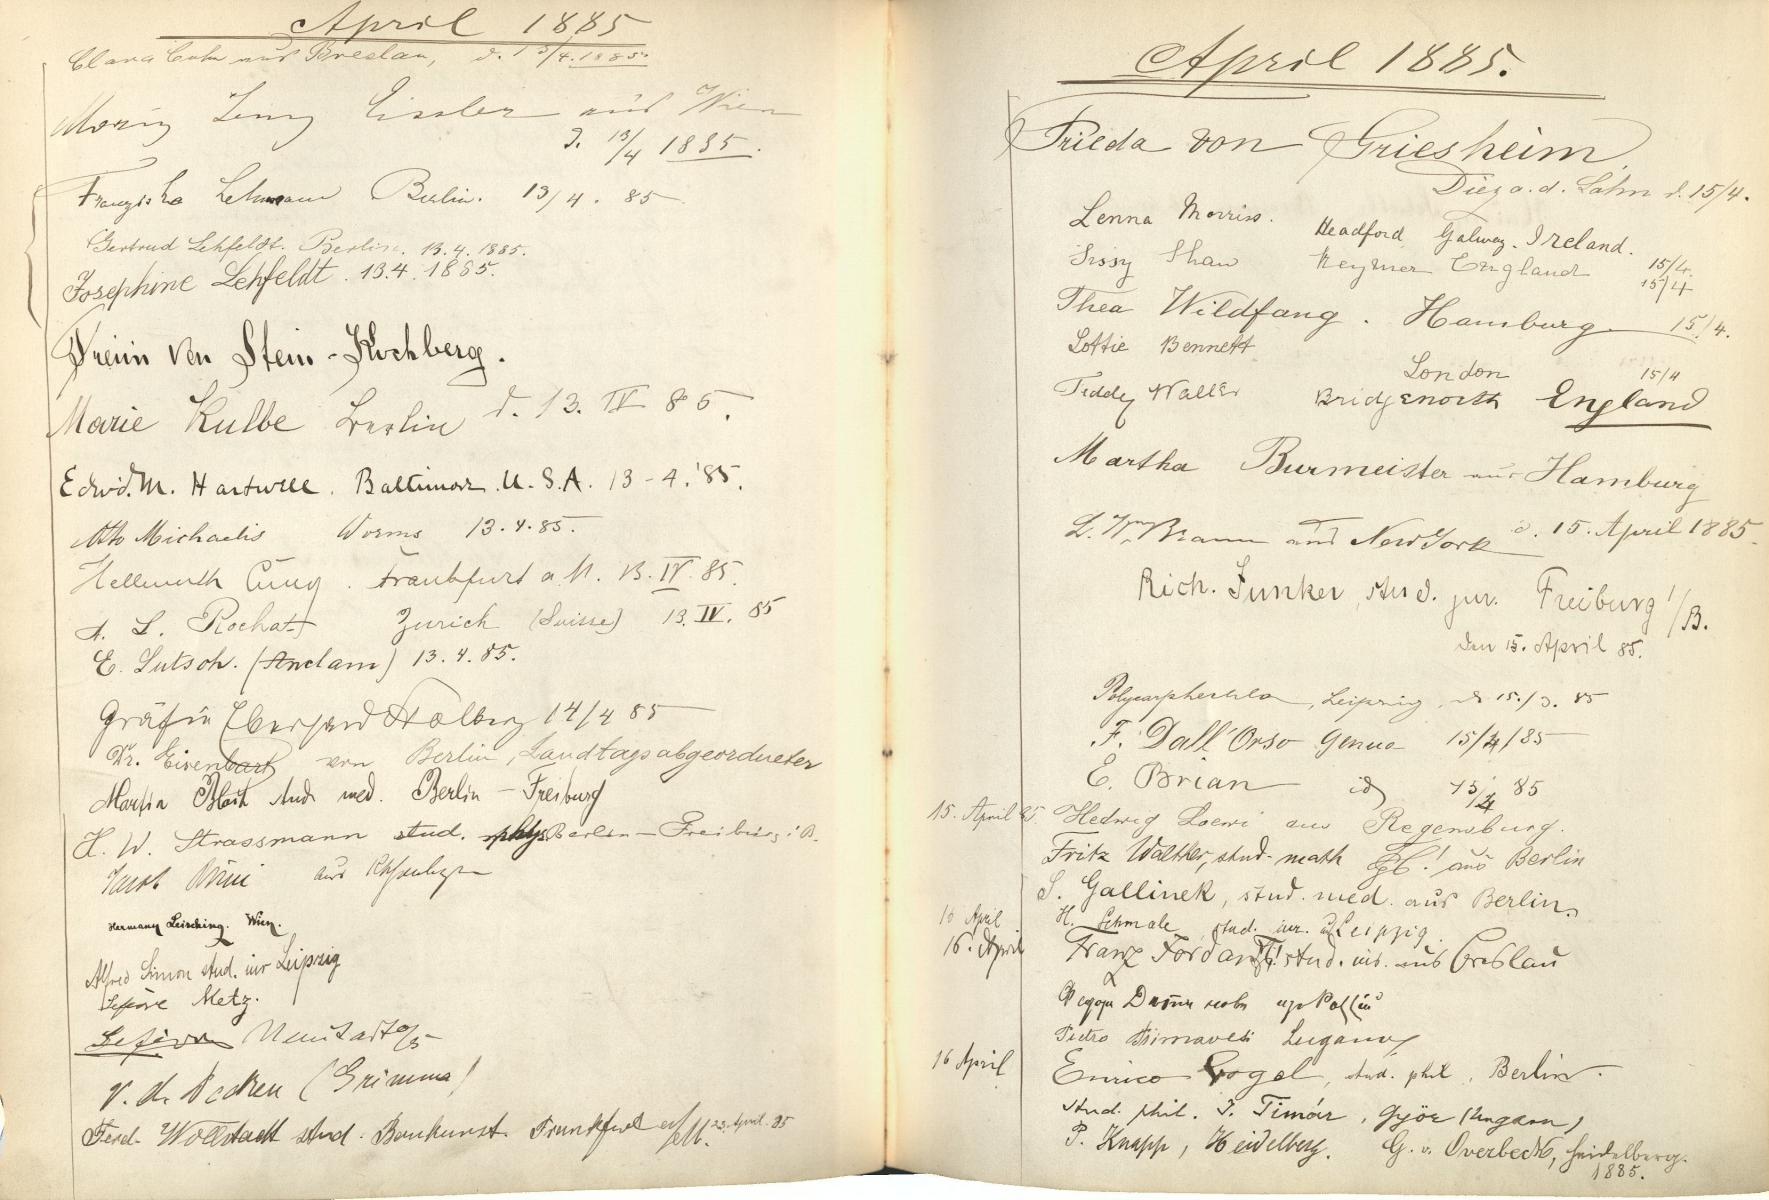 April 1885
Clara Cohn aus Breslau, d. 13/4. 1885.
Moriz Jenny Eissler aus Wien
d. 13/4 1885.
Franziska Lehmann Berlin. 13/4. 85
Gertrud Lehfeldt. Berlin. 13.4.1885.
Josephine Lehfeldt. 13.4.1885.
Freiin von Stein-Kochberg.
Marie Kulbe Berlin d. 13. IV 85.
Edwd. M. Hartwell. Baltimore. U.S.A. 13-4.'85.
Otto Michaelis Worms 13.4.85.
Hellmuth Cung. Frankfurt a. M. 13. IV. 85.
A. L. Rochat Zurich (Suisse) 13. IV. 85
E. Lutsch. (Anclam) 13.4.85.
Gräfin Eberhard Stolberg 14/4 85
Dr. Eisenbart von Berlin, Landtagsabgeordneter
Martin Bloch stud. med. Berlin - Freiburg
H. W. Strassmann stud. phys Berlin - Freiburg i B.
Jacob aus
Hermann Leisching. Wien.
Alfred Simon stud. iur Leipzig
Lefèvre Metz.
Neustadt
v. d. Decken (Grimma)
Ferd. Wollstadt stud. Baukunst. Frankfurt a/M. 23. April. 85
April 1885.
Frieda von Griesheim.
Diez a. d. Lahn d. 15/4.
Lenna Morriss. Headford Galway. Ireland. 15/4.
Sissy Shaw Keymer England 15/4
Thea Wildfang. Hamburg 15/4.
Lottie Bennett London 15/4
Teddy Waller Bridgenorth England
Martha Burmeister aus Hamburg
L. Wm Braun aus New York d. 15. April 1885.
Rich. Junker, stud. jur. Freiburg i/B.
den 15. April 85.
Leipzig, d 15./3. 85
F. Dall'Orso Genua 15/4/85
E. Brian id 15/4 85
15. April 85. Hedwig Loewi aus Regensburg.
Fritz Walther, stud. math aus Berlin
S. Gallinek, stud. med. aus Berlin.
16 April H. Schmale, stud. iur. Leipzig.
16. April Franz Jordan stud. aus Breslau

Pietro Primavesi Lugano
16 April Enrico Gogel, stud. phil, Berlin.
stud. phil. J. Timár, Györ (Ungarn)
P. Knapp, Heidelberg. G. v. Overbeck, Heidelberg.
1885.